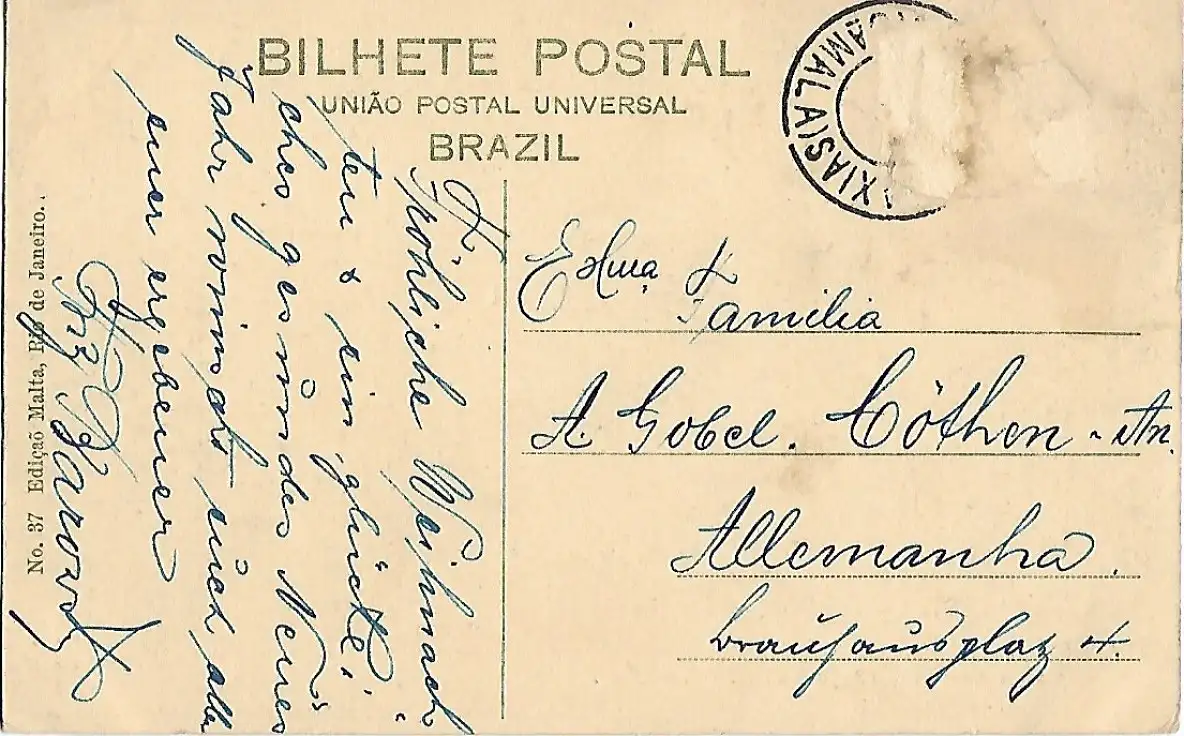 BILHETE POSTAL
UNIÃO POSTAL UNIVERSAL
BRAZIL
Fröhliche Weihnach
ten & ein glückli
ches gesundes Neues
Jahr wünscht euch allen
euer ergebener
Exma Familia
A. Gobel. Cöthen - An.
Allemanha.
Brauhausplatz 4.
No. 37 Edição Malta, Rio de Janeiro.